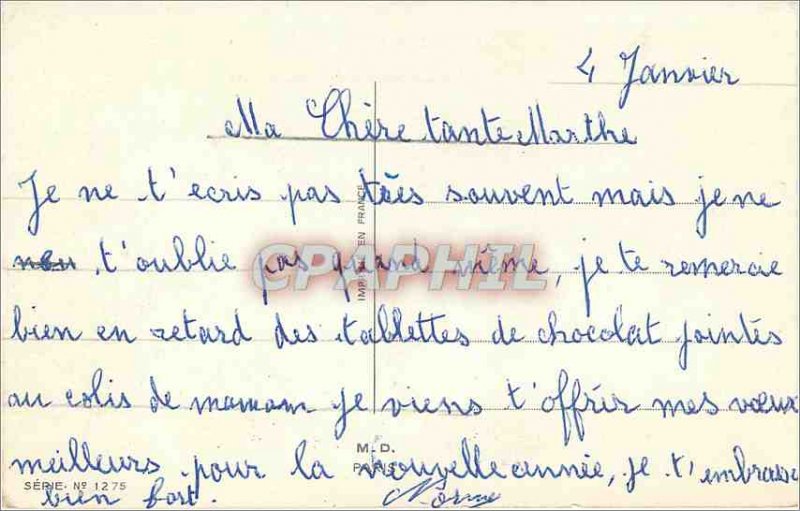 4 Janvier
Ma Chère tante Marthe
Je ne t'ecris pas tèes souvent mais je ne
t'oublie pas quand même, je te remercie
bien en retard des tablettes de chocolat jointés
au colis de maman je viens t'offrir mes vœux
meilleurs pour la nouvelle année, je t'embrasse
bien fort.
IMPRIMÉ EN FRANCE
CPAPHIL
M.D.
PARIS
SÉRIE. Nº 1275